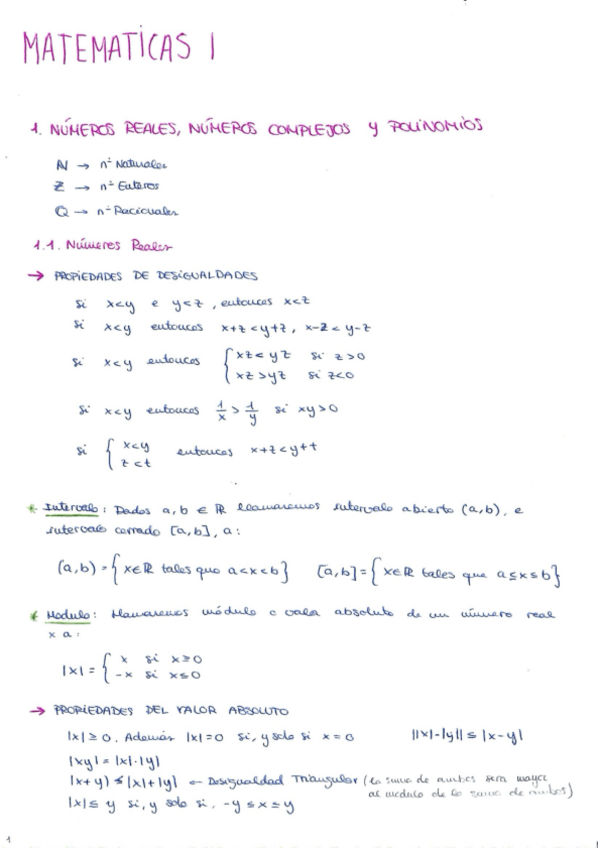 MATEMATICAS I
1. NÚMEROS REALES, NÚMEROS COMPLEJOS y POLINOMIOS
ℕ → nº Naturales
ℤ → nº Enteros
ℚ → nº Racionales
1.1. Números Reales
→ PROPIEDADES DE DESIGUALDADES
Si x<y e y<z, entonces x<z
Si x<y entonces x+z<y+z, x-z<y-z
Si x<y entonces { xz<yz si z>0
xz>yz si z<0
Si x<y entonces 1/x > 1/y si xy>0
Si { x<y
z<t entonces x+z<y+t
* Intervalo: Dados a, b ∈ ℝ llamaremos intervalo abierto (a,b), e
intervalo cerrado [a,b], a:
(a,b) = { x∈ℝ tales que a<x<b } [a,b] = { x∈ℝ tales que a≤x≤b }
* Modulo: Llamaremos módulo o valor absoluto de un número real
x a:
|x| = { x si x≥0
-x si x≤0
→ PROPIEDADES DEL VALOR ABSOLUTO
|x| ≥ 0. Además |x|=0 si, y solo si x=0 ||x|-|y|| ≤ |x-y|
|xy| = |x|·|y|
|x+y| ≤ |x|+|y| ← Desigualdad Triangular (la suma de ambos sera mayor
al modulo de la suma de ambos)
|x| ≤ y si, y solo si, -y ≤ x ≤ y
1